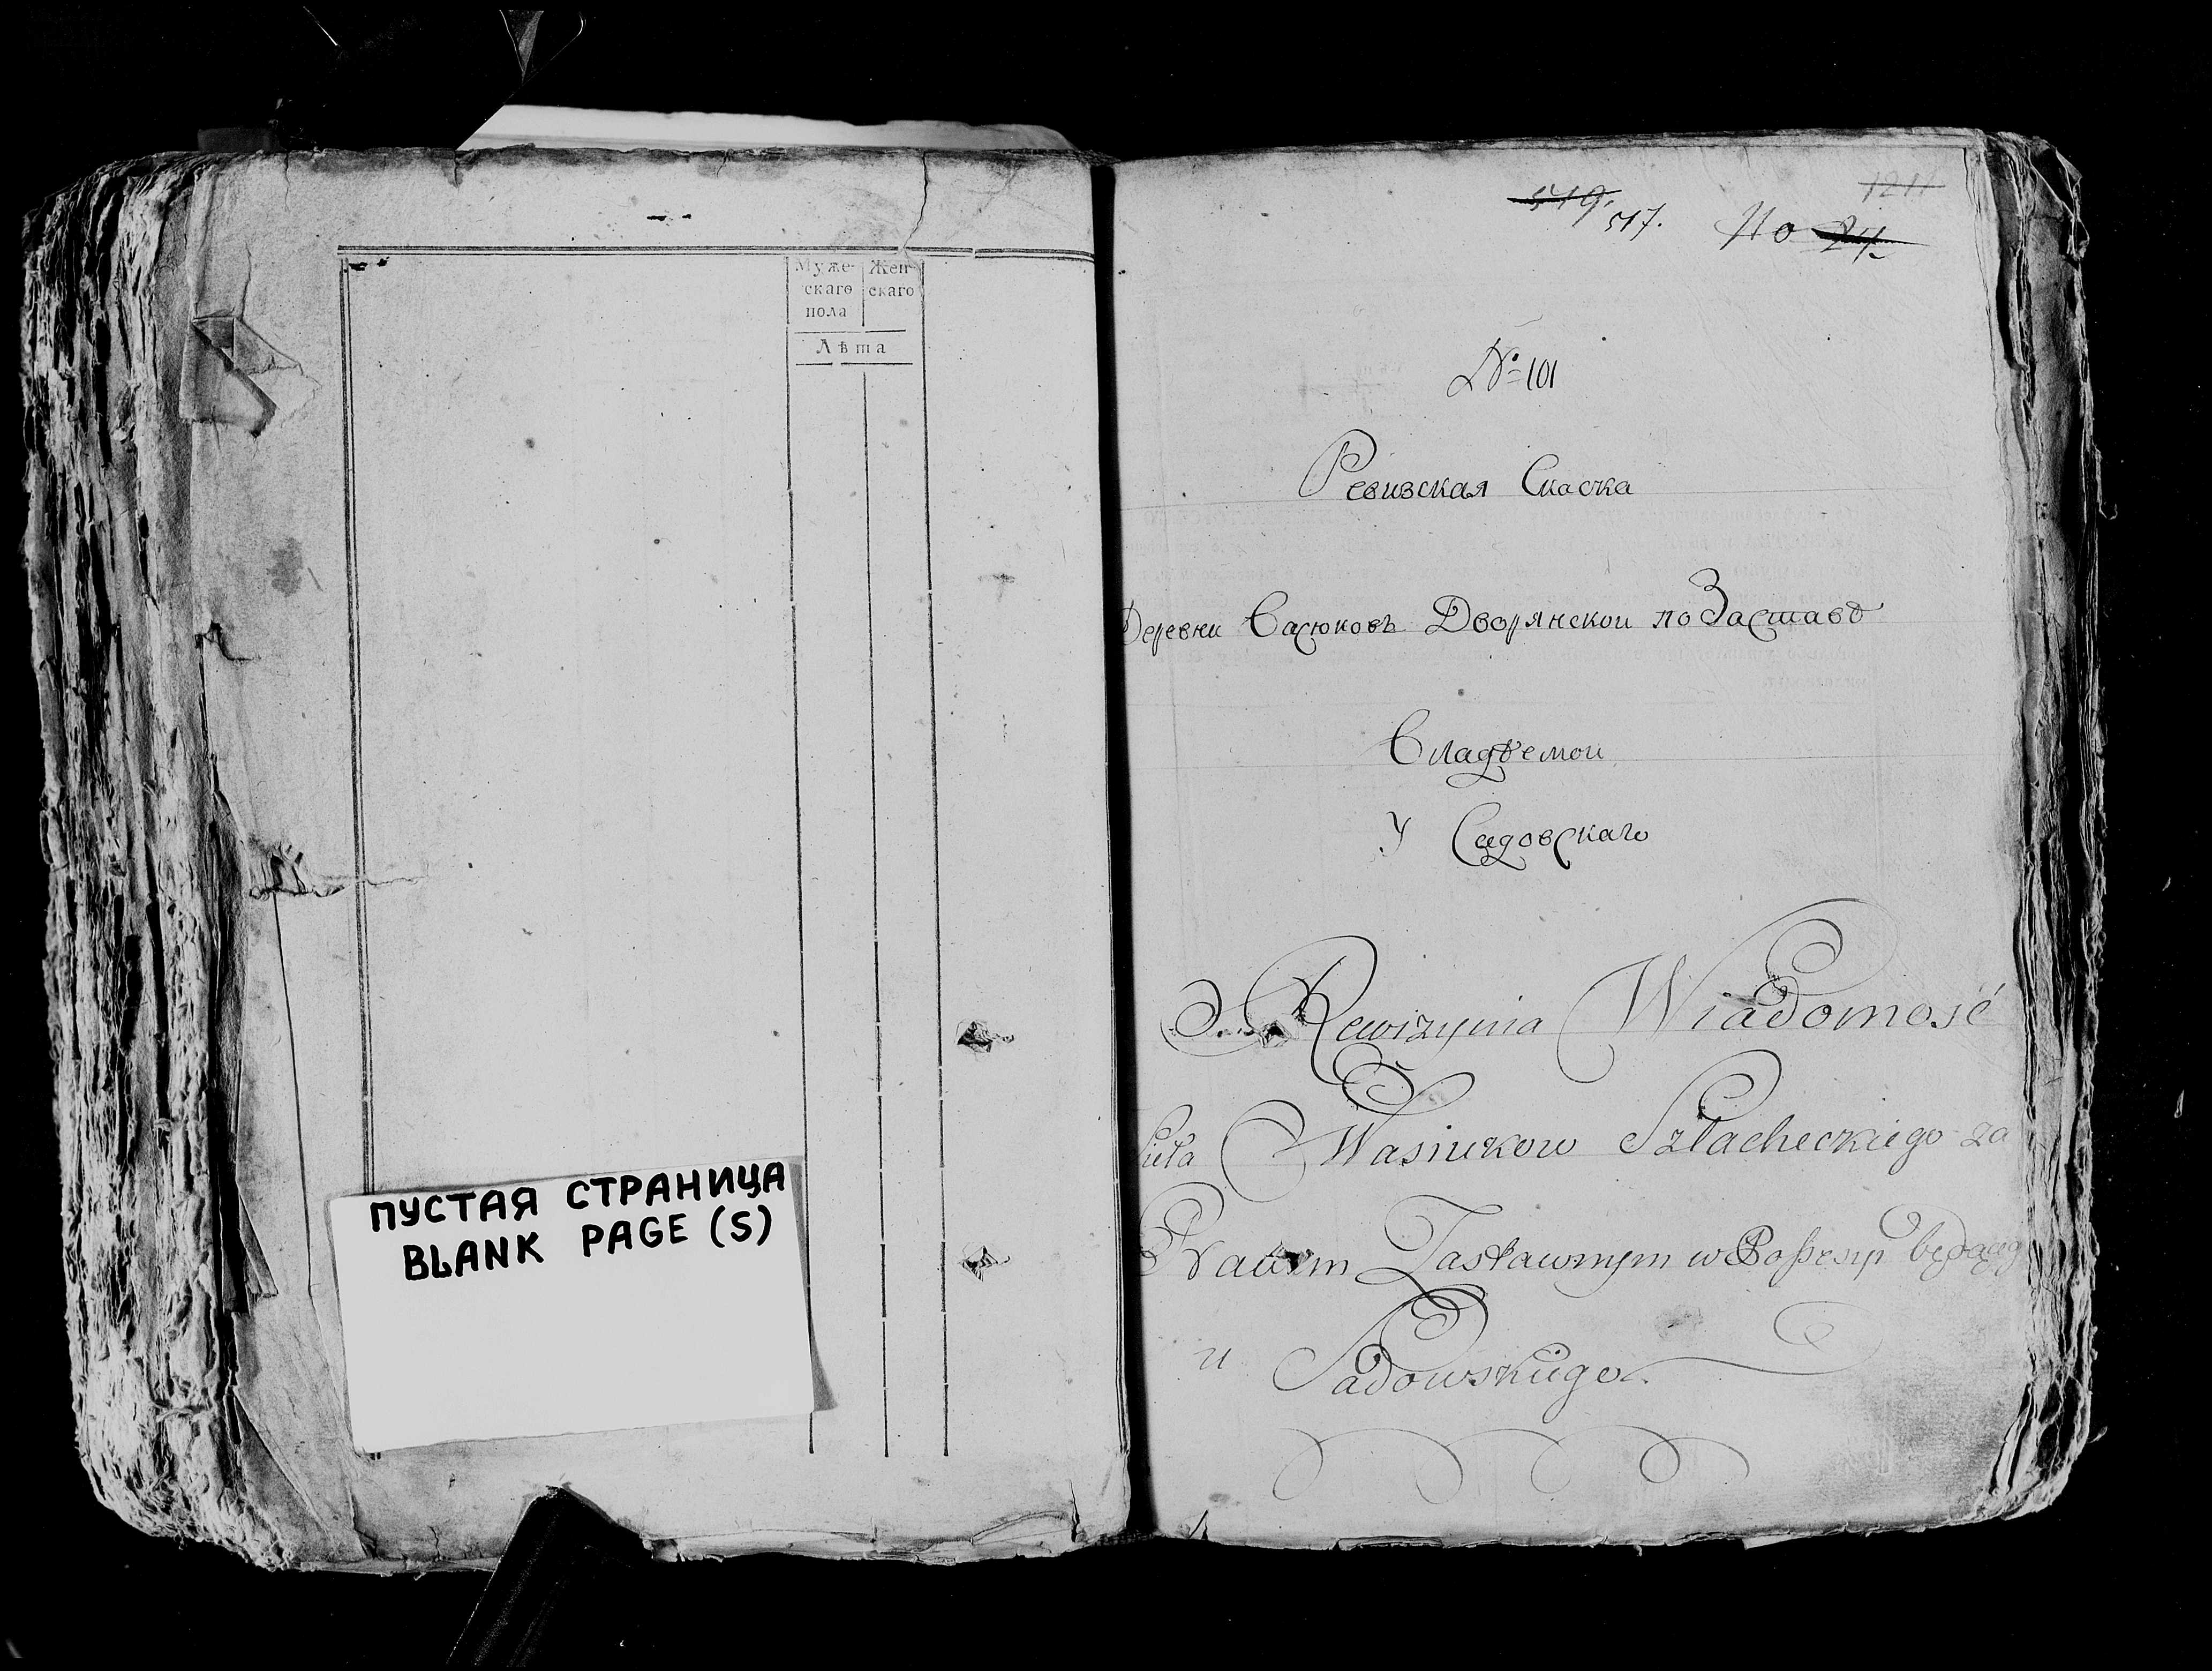 Муже- Жен-
скаго скаго
пола
Лѣта
ПУСТАЯ СТРАНИЦА
BLANK PAGE (S)
519. 1211
517. No 24.
№ 101
Ревизская Скаска
Деревни Васюковъ Дворянской по Заставѣ
Владѣемой
У Садовскаго
Rewizyina Wiadomość
Wasiukow Szlacheckiego za
Prawem Zastawnym w Possesyi
Sadowskiego.